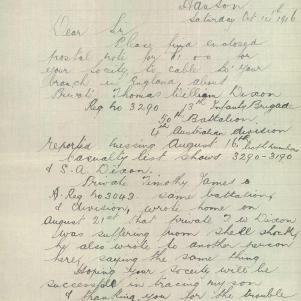 Saturday Oct 14th 1916
Dear Sir
Please find enclosed
postal note for £1.00 for
your society to cable to your
branch in England about
Private Thomas William Dixon
Reg no 3290 13th Infantry Brigade
50th Battalion
4th Australian division
reported missing August 16th both numbers
Casualty list shows 3290-3190
& S.A. Dixon.
Private Timothy James
Reg no 3043 same battalion
& division, wrote home on
August 21st that private T. W Dixon
was suffering from shell shock,
he also wrote to another person
here, saying the same thing
Hoping your society will be
successful in tracing my son
& thanking you for the trouble